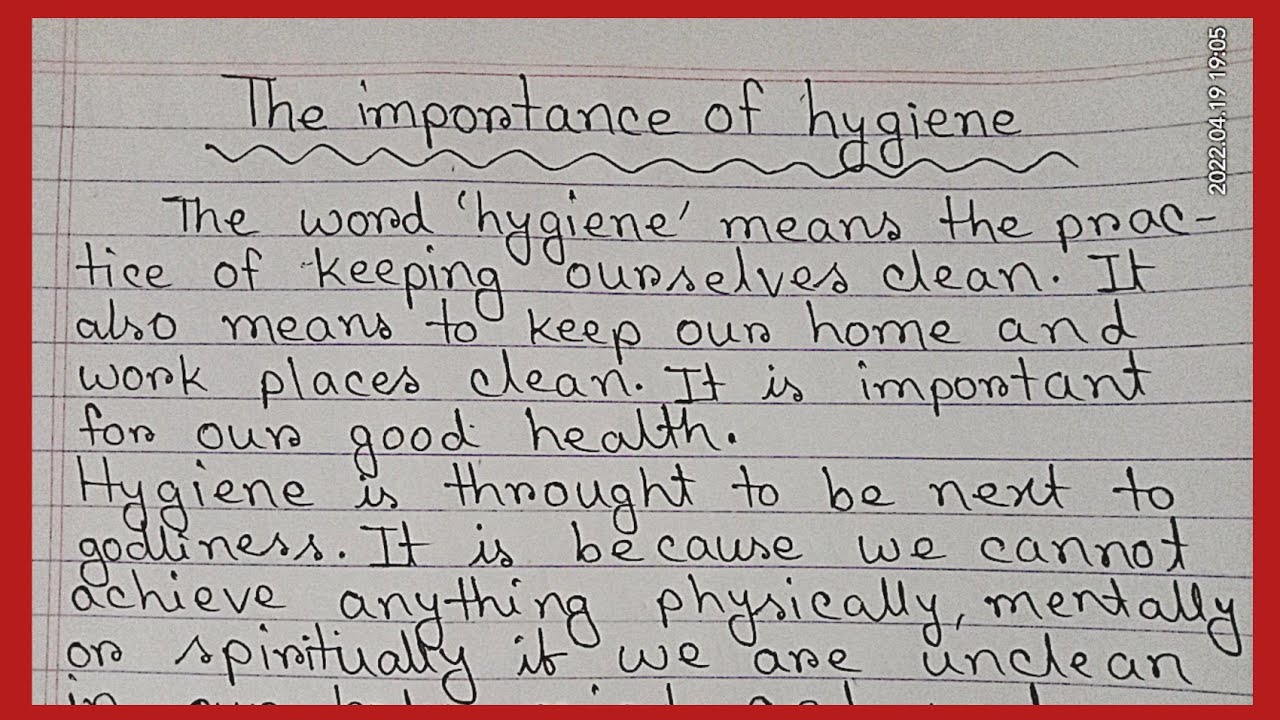 The importance of hygiene
2022.04.19 19:05
The word 'hygiene' means the prac-
tice of keeping ourselves clean. It
also means to keep our home and
work places clean. It is important
for our good health.
Hygiene is throught to be next to
godliness. It is because we cannot
achieve anything physically, mentally
or spiritually if we are unclean
in our